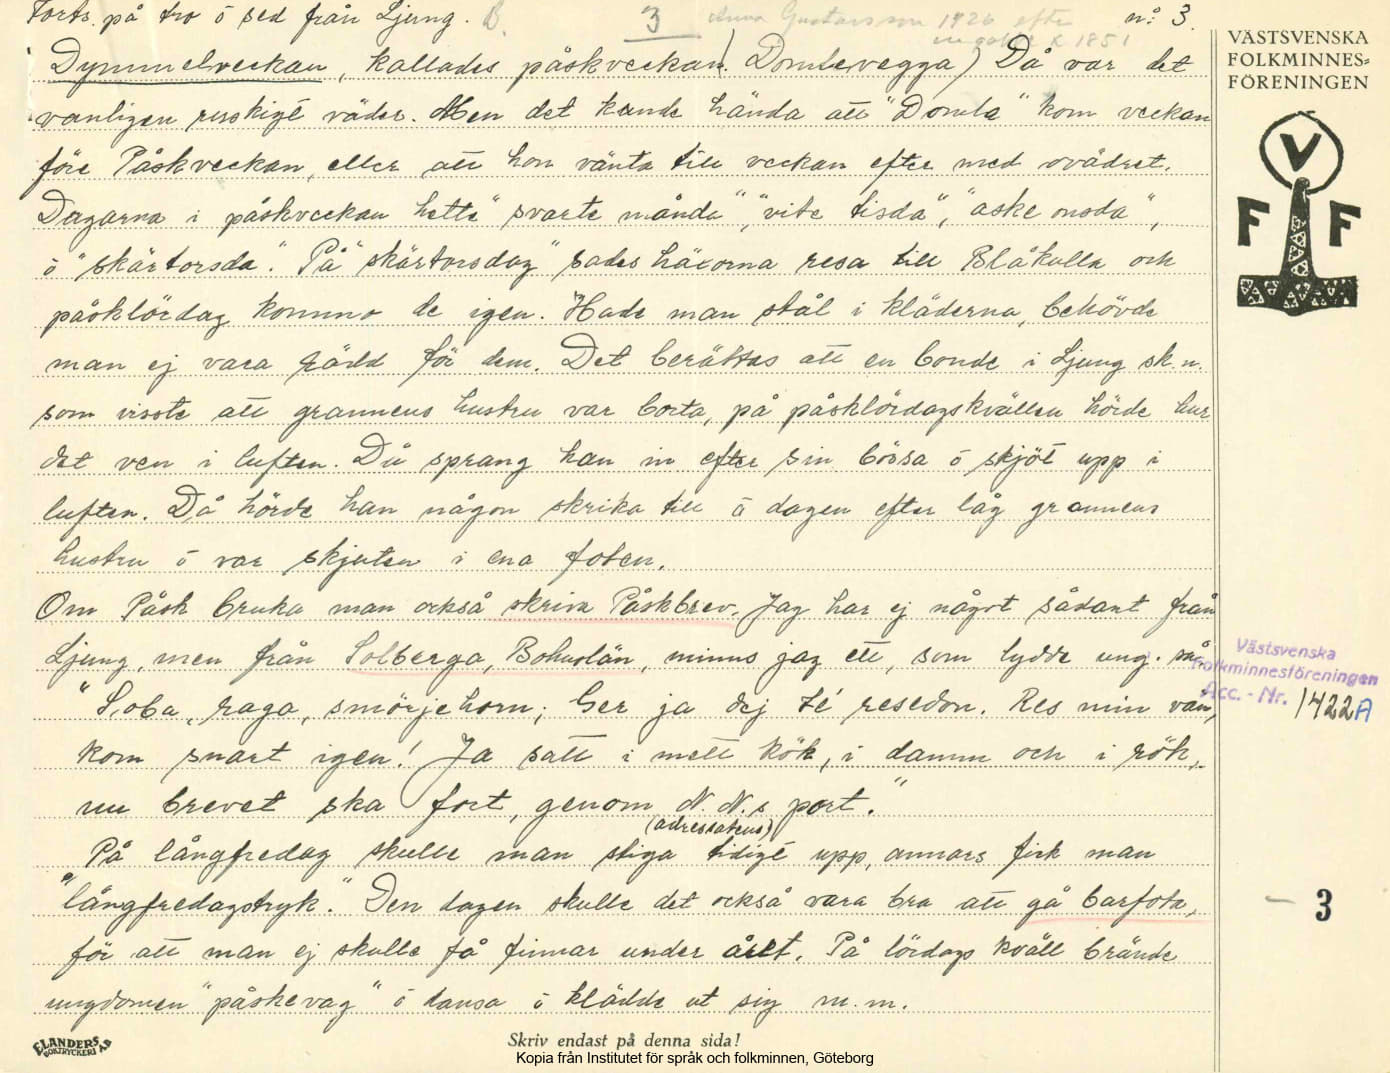 Forts. på tro ö sed från Ljung. B. 3 Anna Gustavsson 1926 efter nr: 3.
Dymmelveckan, kallades påskveckan. (Dombevegga) Då var det
vanligen ruskigt väder. Men det kunde hända att "Domba" kom veckan
före Påskveckan, eller att hon vänta till veckan efter med ovädret.
Dagarna i påskveckan hette "svarte månda", "vite tisda", "aske onsda",
ö "skärtorsda". På "skärtorsdag" sades häxorna resa till Blåkulla och
påsklördag kommo de igen. Hade man stål i kläderna, behövde
man ej vara rädd för dem. Det berättas att en bonde i Ljung sk. n.
som visste att grannens hustru var borta, på påsklördagskvällen hörde hur
det ven i luften. Då sprang han in efter sin bössa ö skjöt upp i
luften. Då hörde han någon skrika till ö dagen efter låg grannens
hustru ö var skjuten i ena foten.
Om Påsk bruka man också skriva Påskbrev. Jag har ej något sådant från
Ljung, men från Solberga, Bohuslän, minns jag ett, som lydde ung. så
"Soba, raga, smörjehorn; Ger ja dej té resedon. Res min vän,
kom snart igen! Ja satt i mett kök, i damm och i rök,
nu brevet ska fort, genom N. N.s port."
(adressatens)
På långfredag skulle man stiga tidigt upp, annars fick man
"långfredagstryk." Den dagen skulle det också vara bra att gå barfota,
för att man ej skulle få finnar under året. På lördags kväll brände
ungdomen "påskevag" ö dansa ö klädde ut sig m.m.
VÄSTSVENSKA
FOLKMINNES=
FÖRENINGEN
V
F F
Västsvenska
Folkminnesföreningen
Acc.-Nr. 1422A
3
ELANDERS
BOKTRYCKERI AB
Skriv endast på denna sida!
Kopia från Institutet för språk och folkminnen, Göteborg